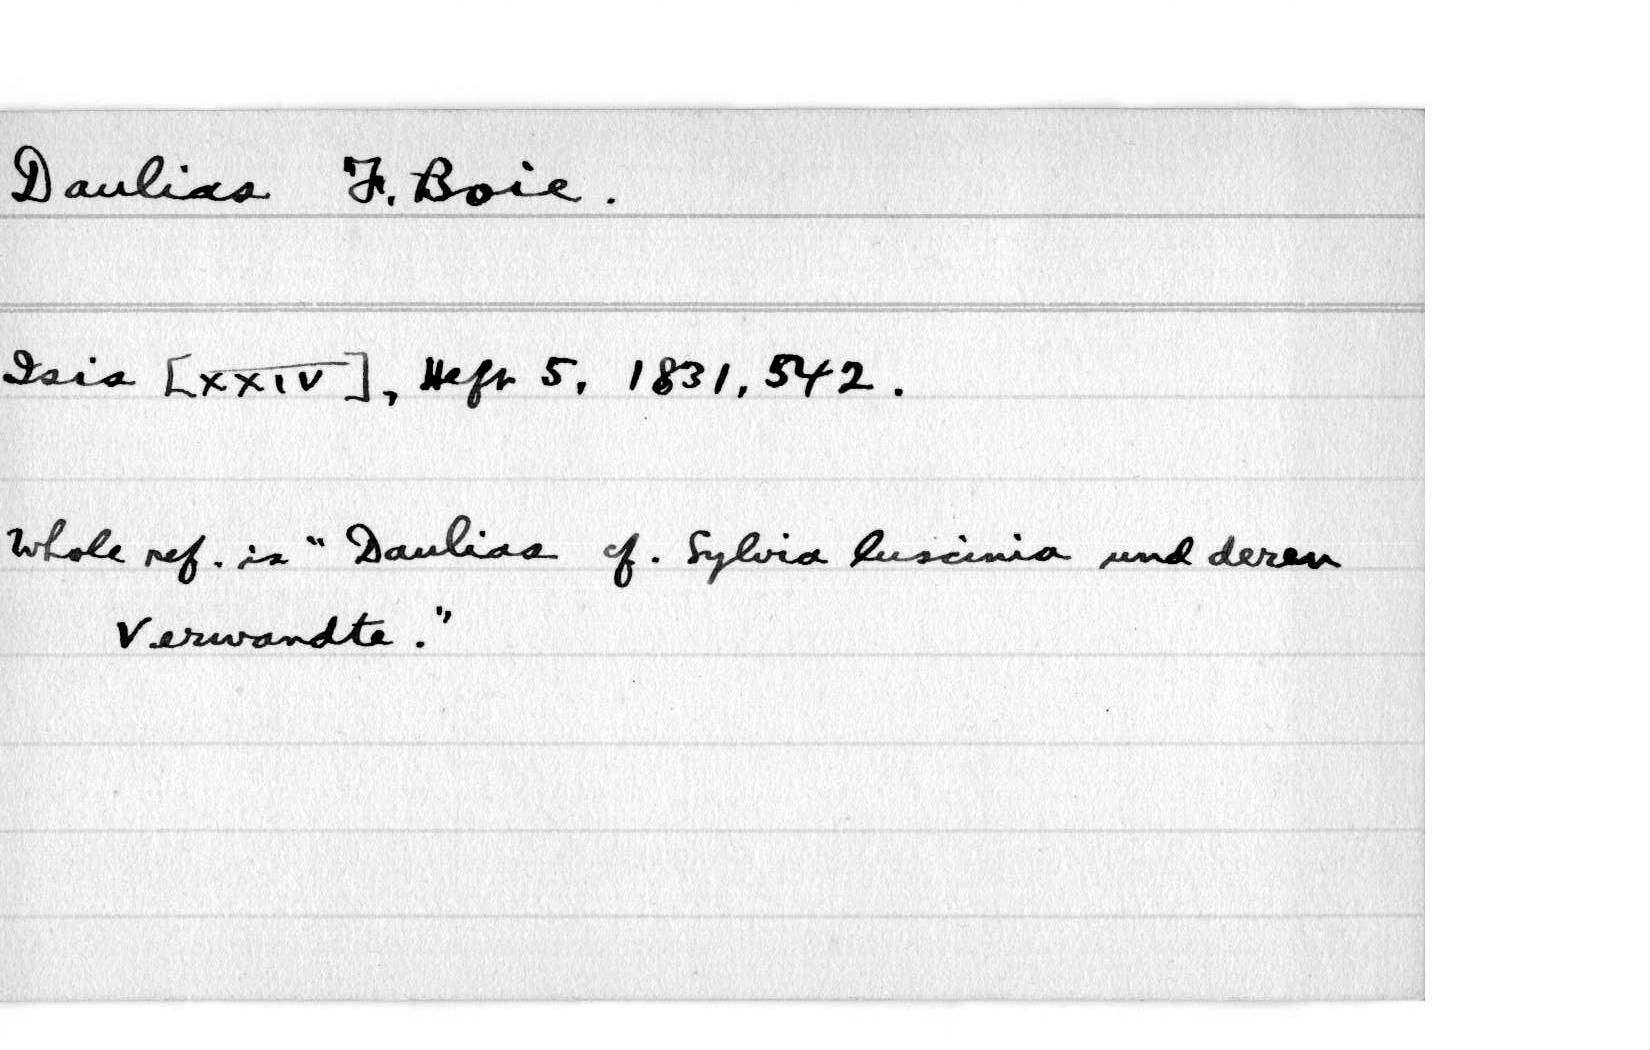 Daulias F. Boie.
Isis [XXIV], Heft 5, 1831, 542.
Whole ref. is "Daulias cf. Sylvia luscinia und deren
Verwandte."